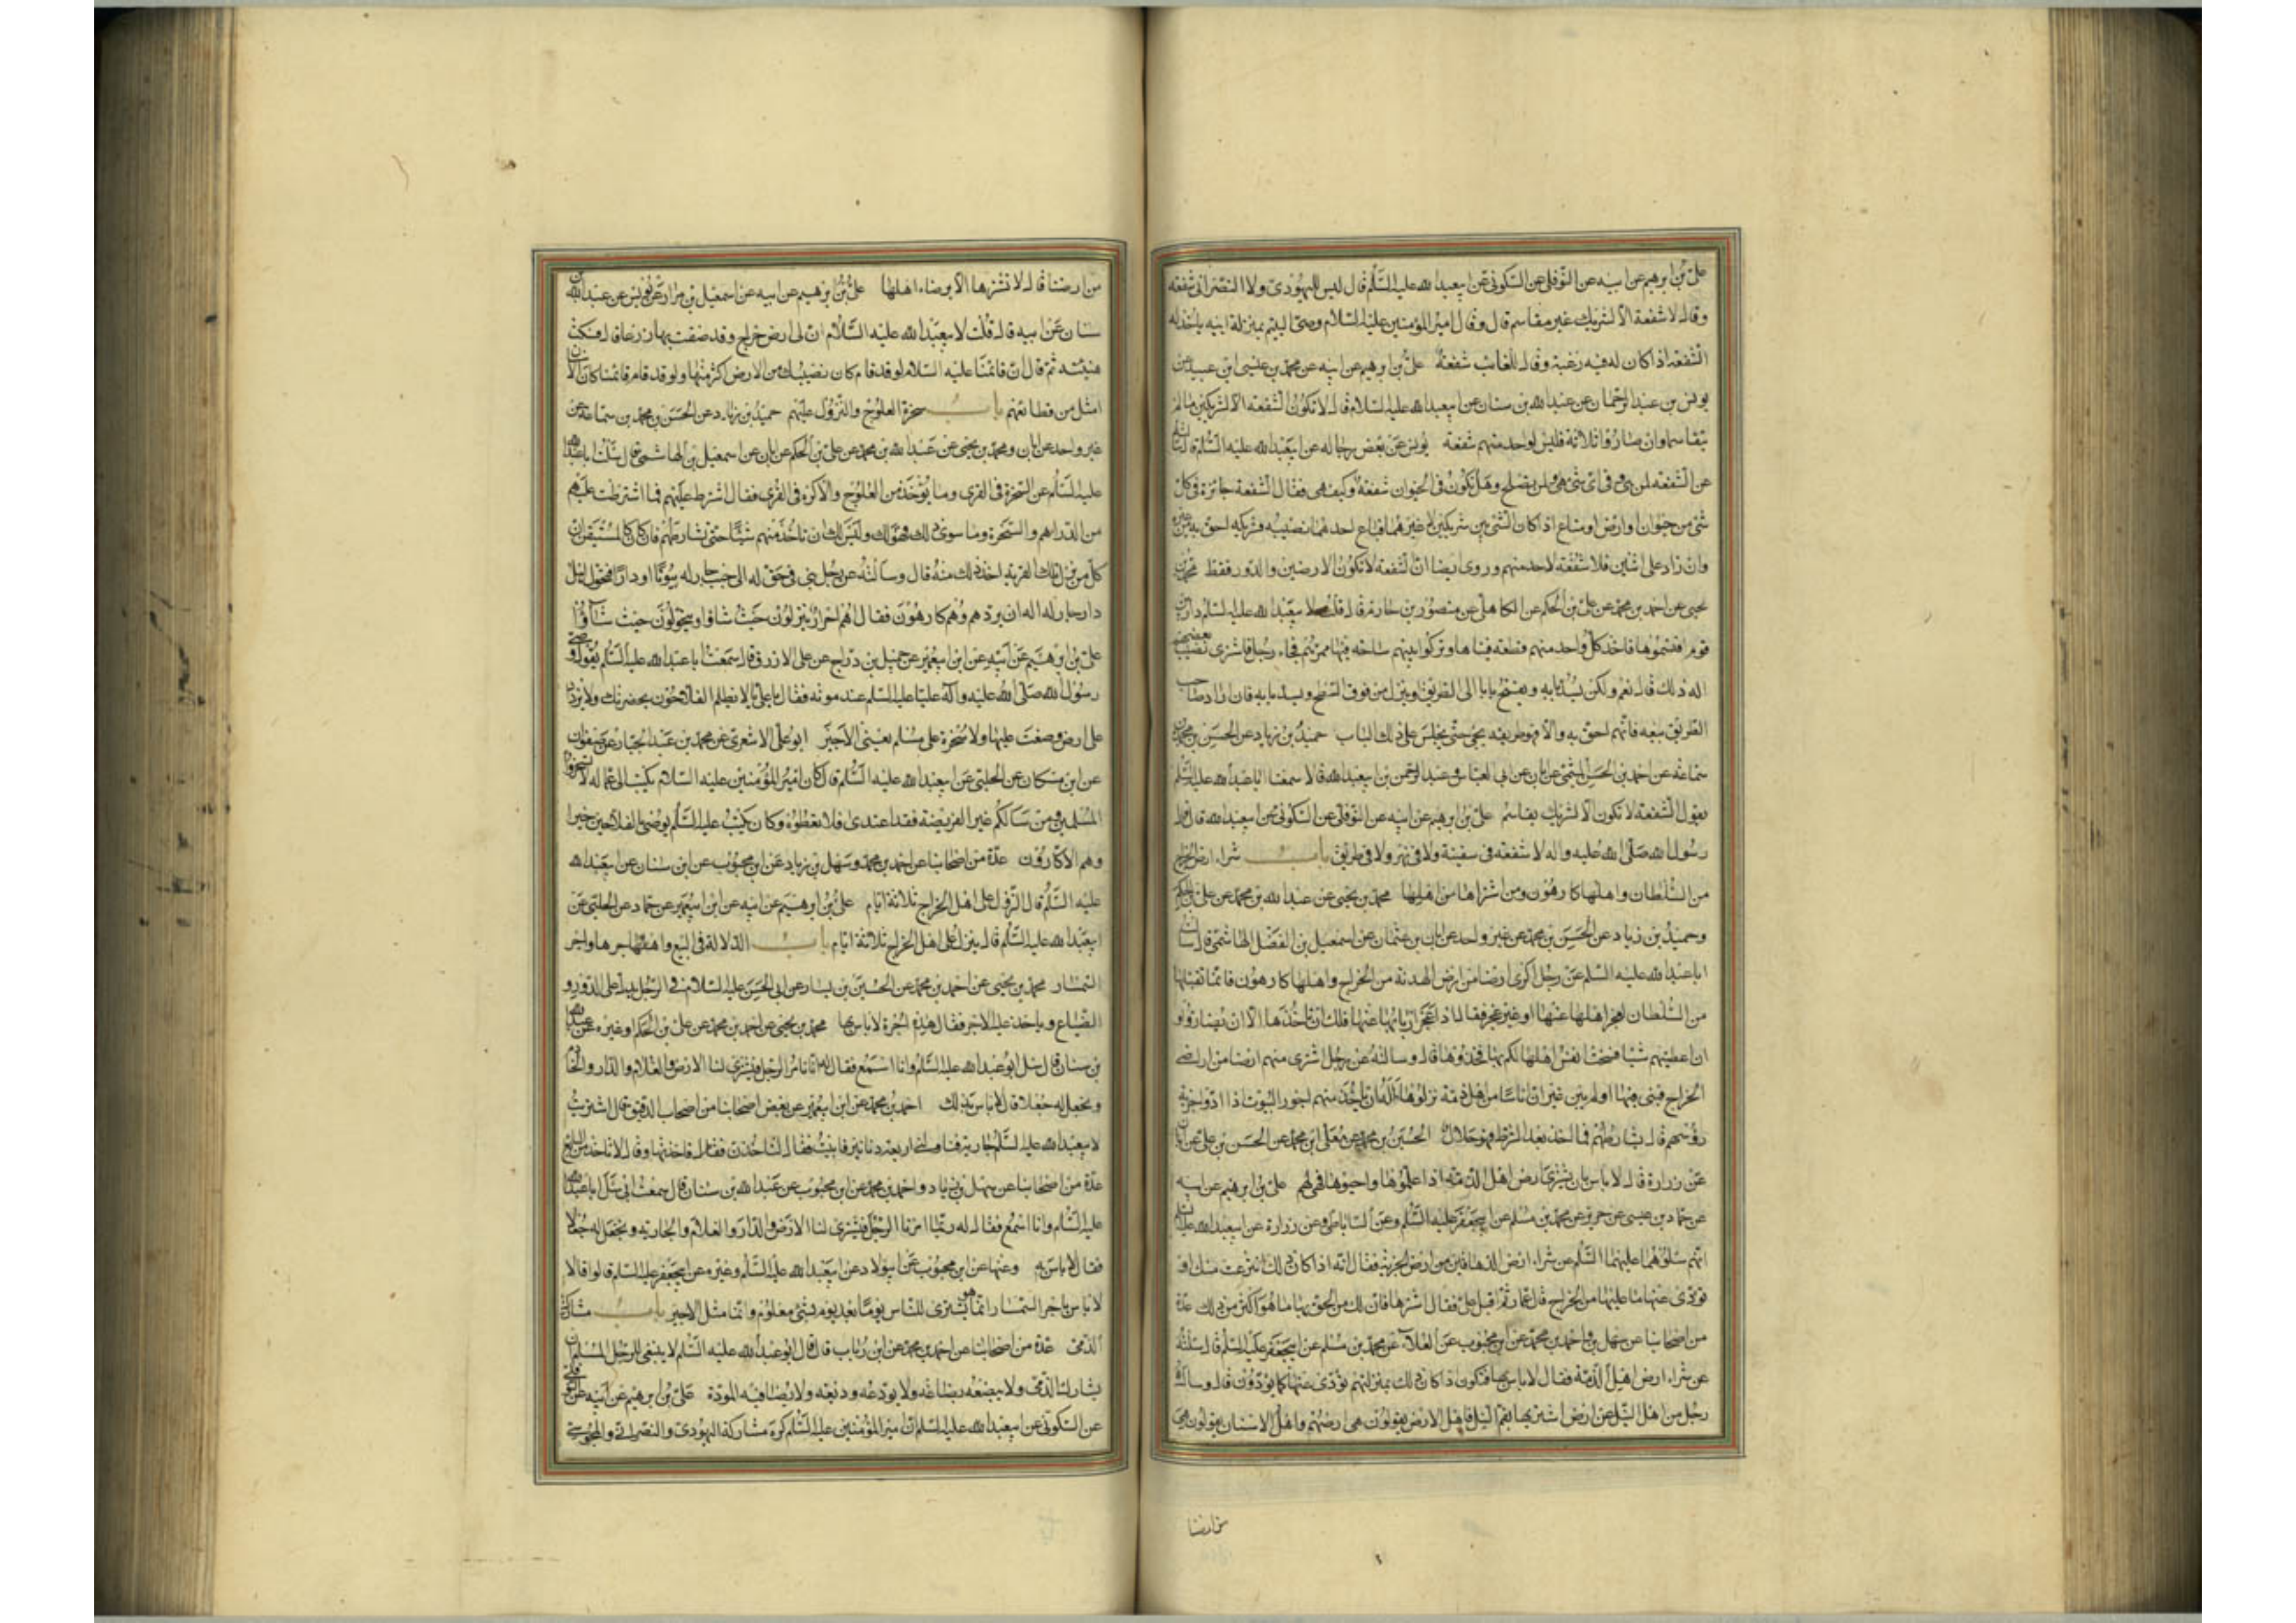 علي بن ابرهيم عن ابيه عن النوفلي عن السكوني عن ابيعبدالله عليه السلم قال ليس لليهودي ولا النصراني شفعة
وقال لا شفعة الا لشريك غير مقاسم قال وقال امير المؤمنين عليه السلام وصي اليتيم بمنزلة ابيه ياخذ له
الشفعة اذا كان له فيه رغبة وقال للغائب شفعة علي بن ابرهيم عن ابيه عن محمد بن عيسى ابن عبيد عن
يونس بن عبد الرحمان عن عبد الله بن سنان عن ابيعبدالله عليه السلام قال لا تكون الشفعة الا لشريكين ما لم
يتقاسما وان صاروا ثلاثة فليس لواحد منهم شفعة يونس عن بعض رجاله عن ابيعبدالله عليه السلم قال سالته
عن الشفعة لمن هي وفي اي شئ هي ولمن يصلح وهل تكون في الحيوان شفعة وكيف هي فقال الشفعة جائزة في كل
شئ من حيوان او ارض او متاع اذا كان الشئ بين شريكين لا غيرهما فباع احدهما نصيبه فشريكه احق به من غيره
وان زاد على اثنين فلا شفعة لاحد منهم وروى ايضا ان الشفعة لا تكون الا لارضين والدور فقط محمد بن
يحيى عن احمد بن محمد عن علي بن الحكم عن الكاهلي عن منصور بن حازم قال قلت لابيعبدالله عليه السلم دار بين
قوم اقتسموها فاخذ كل واحد منهم قطعة فبناها وتركوا بينهم ساحة فيها ممرهم فجاء رجل فاشترى نصيب بعضهم
اله ذلك قال نعم ولكن يسد بابه ويفتح بابا الى الطريق او ينزل من فوق السطح ويسد بابه فان اراد صاحب
الطريق بيعه فانهم احق به والا فهو طريقه يجئ حتى يجلس على ذلك الباب حميد بن زياد عن الحسن بن محمد بن
سماعة عن احمد بن الحسن الميثمي عن ابان عن ابي العباس وعبد الرحمن بن ابيعبدالله قالا سمعنا اباعبدالله عليه السلم
يقول الشفعة لا تكون الا لشريك يقاسم علي بن ابرهيم عن ابيه عن النوفلي عن السكوني عن ابيعبدالله قال قال
رسول الله صلى الله عليه واله لا شفعة في سفينة ولا في نهر ولا في طريق باب شراء ارض الخراج
من السلطان واهلها كارهون ومن اشتراها من اهلها محمد بن يحيى عن عبد الله بن محمد عن علي بن الحكم
وحميد بن زياد عن الحسن بن محمد عن غير واحد عن ابان بن عثمان عن اسمعيل بن الفضل الهاشمي قال سالت
اباعبدالله عليه السلم عن رجل اكترى ارضا من ارض اهل الذمة من الخراج واهلها كارهون وانما تقبلها
من السلطان لعجز اهلها عنها او غير عجز فقال اذا عجز اربابها عنها فلك ان تاخذها الا ان يضاروا و
ان اعطيتهم شيئا فسخت انفس اهلها لكم بها فخذوها قال وسالته عن رجل اشترى منهم ارضا من اراضي
الخراج فبنى فيها او لم يبن غير ان اناسا من اهل الذمة نزلوها اله ان ياخذ منهم اجور البيوت اذا ادوا جزية
رؤسهم قال يشارطهم فما اخذ بعد الشرط فهو حلال الحسين بن محمد عن معلى ابن محمد عن الحسن بن علي عن ابان
عن زرارة قال لا باس بان يشترى ارض اهل الذمة اذا عملوها واحيوها فهي لهم علي بن ابرهيم عن ابيه
عن حماد بن عيسى عن حريز عن محمد بن مسلم عن ابيجعفر عليه السلم وعن الساباطي وعن زرارة عن ابيعبدالله عليه السلم
انهم سئلوهما عليهما السلم عن شراء ارض الدهاقين من ارض الجزية فقال انه اذا كان ذلك انتزعت منك او
تؤدى عنها ما عليها من الخراج قال عمار ثم اقبل علي فقال اشترها فان لك من الحق بها ما هو اكثر من ذلك عدة
من اصحابنا عن سهل بن واحمد بن محمد عن ابن محبوب عن العلاء عن محمد بن مسلم عن ابيجعفر عليه السلم قال سئلته
عن شراء ارض اهل الذمة فقال لا باس بها فتكون اذا كان ذلك بمنزلتهم تؤدى عنها كما يؤدون قال وساله
رجل من اهل النيل عن ارض اشتريها بفم النيل فاهل الارض يقولون هي ارضهم واهل الاستان يقولون هي
من ارضنا
من ارضنا قال لا تشترها الا برضاء اهلها علي بن ابرهيم عن ابيه عن اسمعيل بن مرار عن يونس عن عبدالله بن
سنان عن ابيه قال قلت لابيعبدالله عليه السلام ان لي ارض خراج وقد ضقت بها ذرعا قال فسكت
هنيئة ثم قال ان قائمنا عليه السلام لو قد قام كان نصيبك من الارض اكثر منها ولو قد قام قائمنا كان الانسان
امثل من قطائعهم باب سخرة العلوج والنزول عليهم حميد بن زياد عن الحسن بن محمد بن سماعة عن
غير واحد عن ابان ومحمد بن يحيى عن عبد الله بن محمد عن علي بن الحكم عن ابان عن اسمعيل بن الهاشمي قال سئلت اباعبدالله
عليه السلم عن السخرة في القرى وما يؤخذ من العلوج والاكرة في القرى فقال اشترط عليهم فما اشترطت عليهم
من الدراهم والسخرة وما سوى ذلك فهو لك وليس لك ان تاخذ منهم شيئا حتى تشارطهم وان كان كالمستيقن ان
كل من نزل تلك القرية اخذ ذلك منه قال وسالته عن رجل بنى في حق له الى جنب جار له بيوتا او دارا فتحول اهل
دار جار له اله ان يردهم وهم كارهون فقال هم احرار ينزلون حيث شاؤا ويتحولون حيث شاؤا
علي بن ابرهيم عن ابيه عن ابن ابيعمير عن جميل بن دراج عن علي الازرق قال سمعت اباعبدالله عليه السلم يقول وصى
رسول الله صلى الله عليه واله عليا عليه السلم عند موته فقال يا علي لا يظلم الفلاحون بحضرتك ولا يزداد
على ارض وضعت عليها ولا سخرة على مسلم يعني الاجير ابو علي الاشعري عن محمد بن عبد الجبار عن صفوان
عن ابن مسكان عن الحلبي عن ابيعبدالله عليه السلم قال كان امير المؤمنين عليه السلام يكتب الى عماله لا تسخروا
المسلمين ومن سالكم غير الفريضة فقد اعتدى فلا تعطوه وكان يكتب عليه السلم يوصي بالفلاحين خيرا
وهم الاكارون عدة من اصحابنا عن احمد بن محمد وسهل بن زياد عن ابن محبوب عن ابن سنان عن ابيعبدالله
عليه السلم قال النزول على اهل الخراج ثلاثة ايام علي بن ابرهيم عن ابيه عن ابن ابيعمير عن حماد عن الحلبي عن
ابيعبدالله عليه السلم قال ينزل على اهل الخراج ثلاثة ايام باب الدلالة في البيع واجرها واجر
السمسار محمد بن يحيى عن احمد بن محمد عن الحسين بن يسار عن ابي الحسن عليه السلام في الرجل يدل على الدور و
الضياع وياخذ عليه الاجر فقال هذه اجرة لا باس بها محمد بن يحيى عن احمد بن محمد عن علي بن الحكم او غيره عن عبدالله
بن سنان قال سئل ابو عبدالله عليه السلم وانا اسمع فقال له انا نامر الرجل فيشترى لنا الارض والغلام والدار والخادم
ونجعل له جعلا قال لا باس بذلك احمد بن محمد عن ابن ابيعمير عن بعض اصحابنا من اصحاب الدقيق قال اشتريت
لابيعبدالله عليه السلم جارية فناولني اربعة دنانير فابيت فقال لتاخذن فاخذتها وقال لا تاخذ من البايع
عدة من اصحابنا عن سهل بن زياد واحمد بن محمد عن ابن محبوب عن عبدالله بن سنان قال سمعت ابي سئل اباعبدالله
عليه السلم وانا اسمع فقال له ربما امرنا الرجل فيشترى لنا الارض والدار والغلام والجارية ونجعل له جعلا
فقال لا باس به وعنهما عن ابن محبوب عن ابيولاد عن ابيعبدالله عليه السلم وغيره عن ابيجعفر عليه السلم قالوا قالا
لا باس باجر السمسار انما هو يشترى للناس يوما بعد يوم بشئ معلوم وانما مثل الاجير باب مشاركة
الذمي عدة من اصحابنا عن احمد بن محمد عن ابن رئاب قال قال ابو عبدالله عليه السلم لا ينبغي للرجل المسلم ان
يشارك الذمي ولا يبضعه بضاعة ولا يودعه وديعة ولا يصافيه المودة علي بن ابرهيم عن ابيه عن النوفلي
عن السكوني عن ابيعبدالله عليه السلم ان امير المؤمنين عليه السلم كره مشاركة اليهودي والنصراني والمجوسي